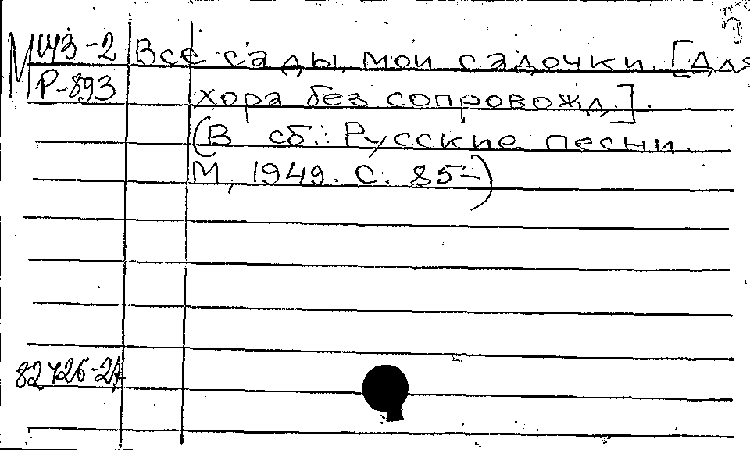 М Щ3-2 Все сады, мои садочки. [Для
Р-893 хора без сопровожд.].
(В сб.: Русские песни.
М, 1949. С. 85-)
82426-2А